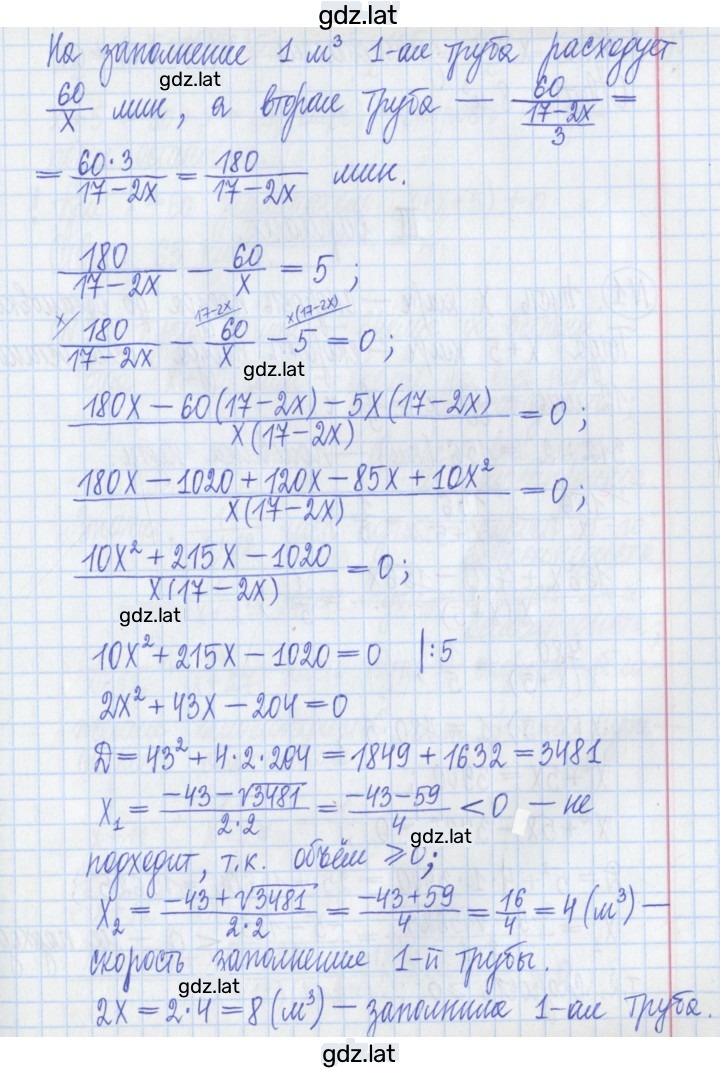 gdz.lat
На заполнение 1 м³ 1-ая труба расходует
gdz.lat
60/x мин, а вторая труба — 60/((17-2x)/3) =
= 60·3/(17-2x) = 180/(17-2x) мин.
180/(17-2x) - 60/x = 5 ;
x/ 17-2x/ x(17-2x)/
180/(17-2x) - 60/x - 5 = 0 ;
gdz.lat
(180x - 60(17-2x) - 5x(17-2x))/(x(17-2x)) = 0 ;
(180x - 1020 + 120x - 85x + 10x²)/(x(17-2x)) = 0 ;
(10x² + 215x - 1020)/(x(17-2x)) = 0 ;
gdz.lat
10x² + 215x - 1020 = 0 |:5
2x² + 43x - 204 = 0
D = 43² + 4·2·204 = 1849 + 1632 = 3481
x₁ = (-43-√3481)/(2·2) = (-43-59)/4 < 0 — не
gdz.lat
подходит, т.к. объём ⩾ 0;
x₂ = (-43+√3481)/(2·2) = (-43+59)/4 = 16/4 = 4 (м³) —
скорость заполнение 1-й трубы.
gdz.lat
2x = 2·4 = 8 (м³) — заполнила 1-ая труба.
gdz.lat